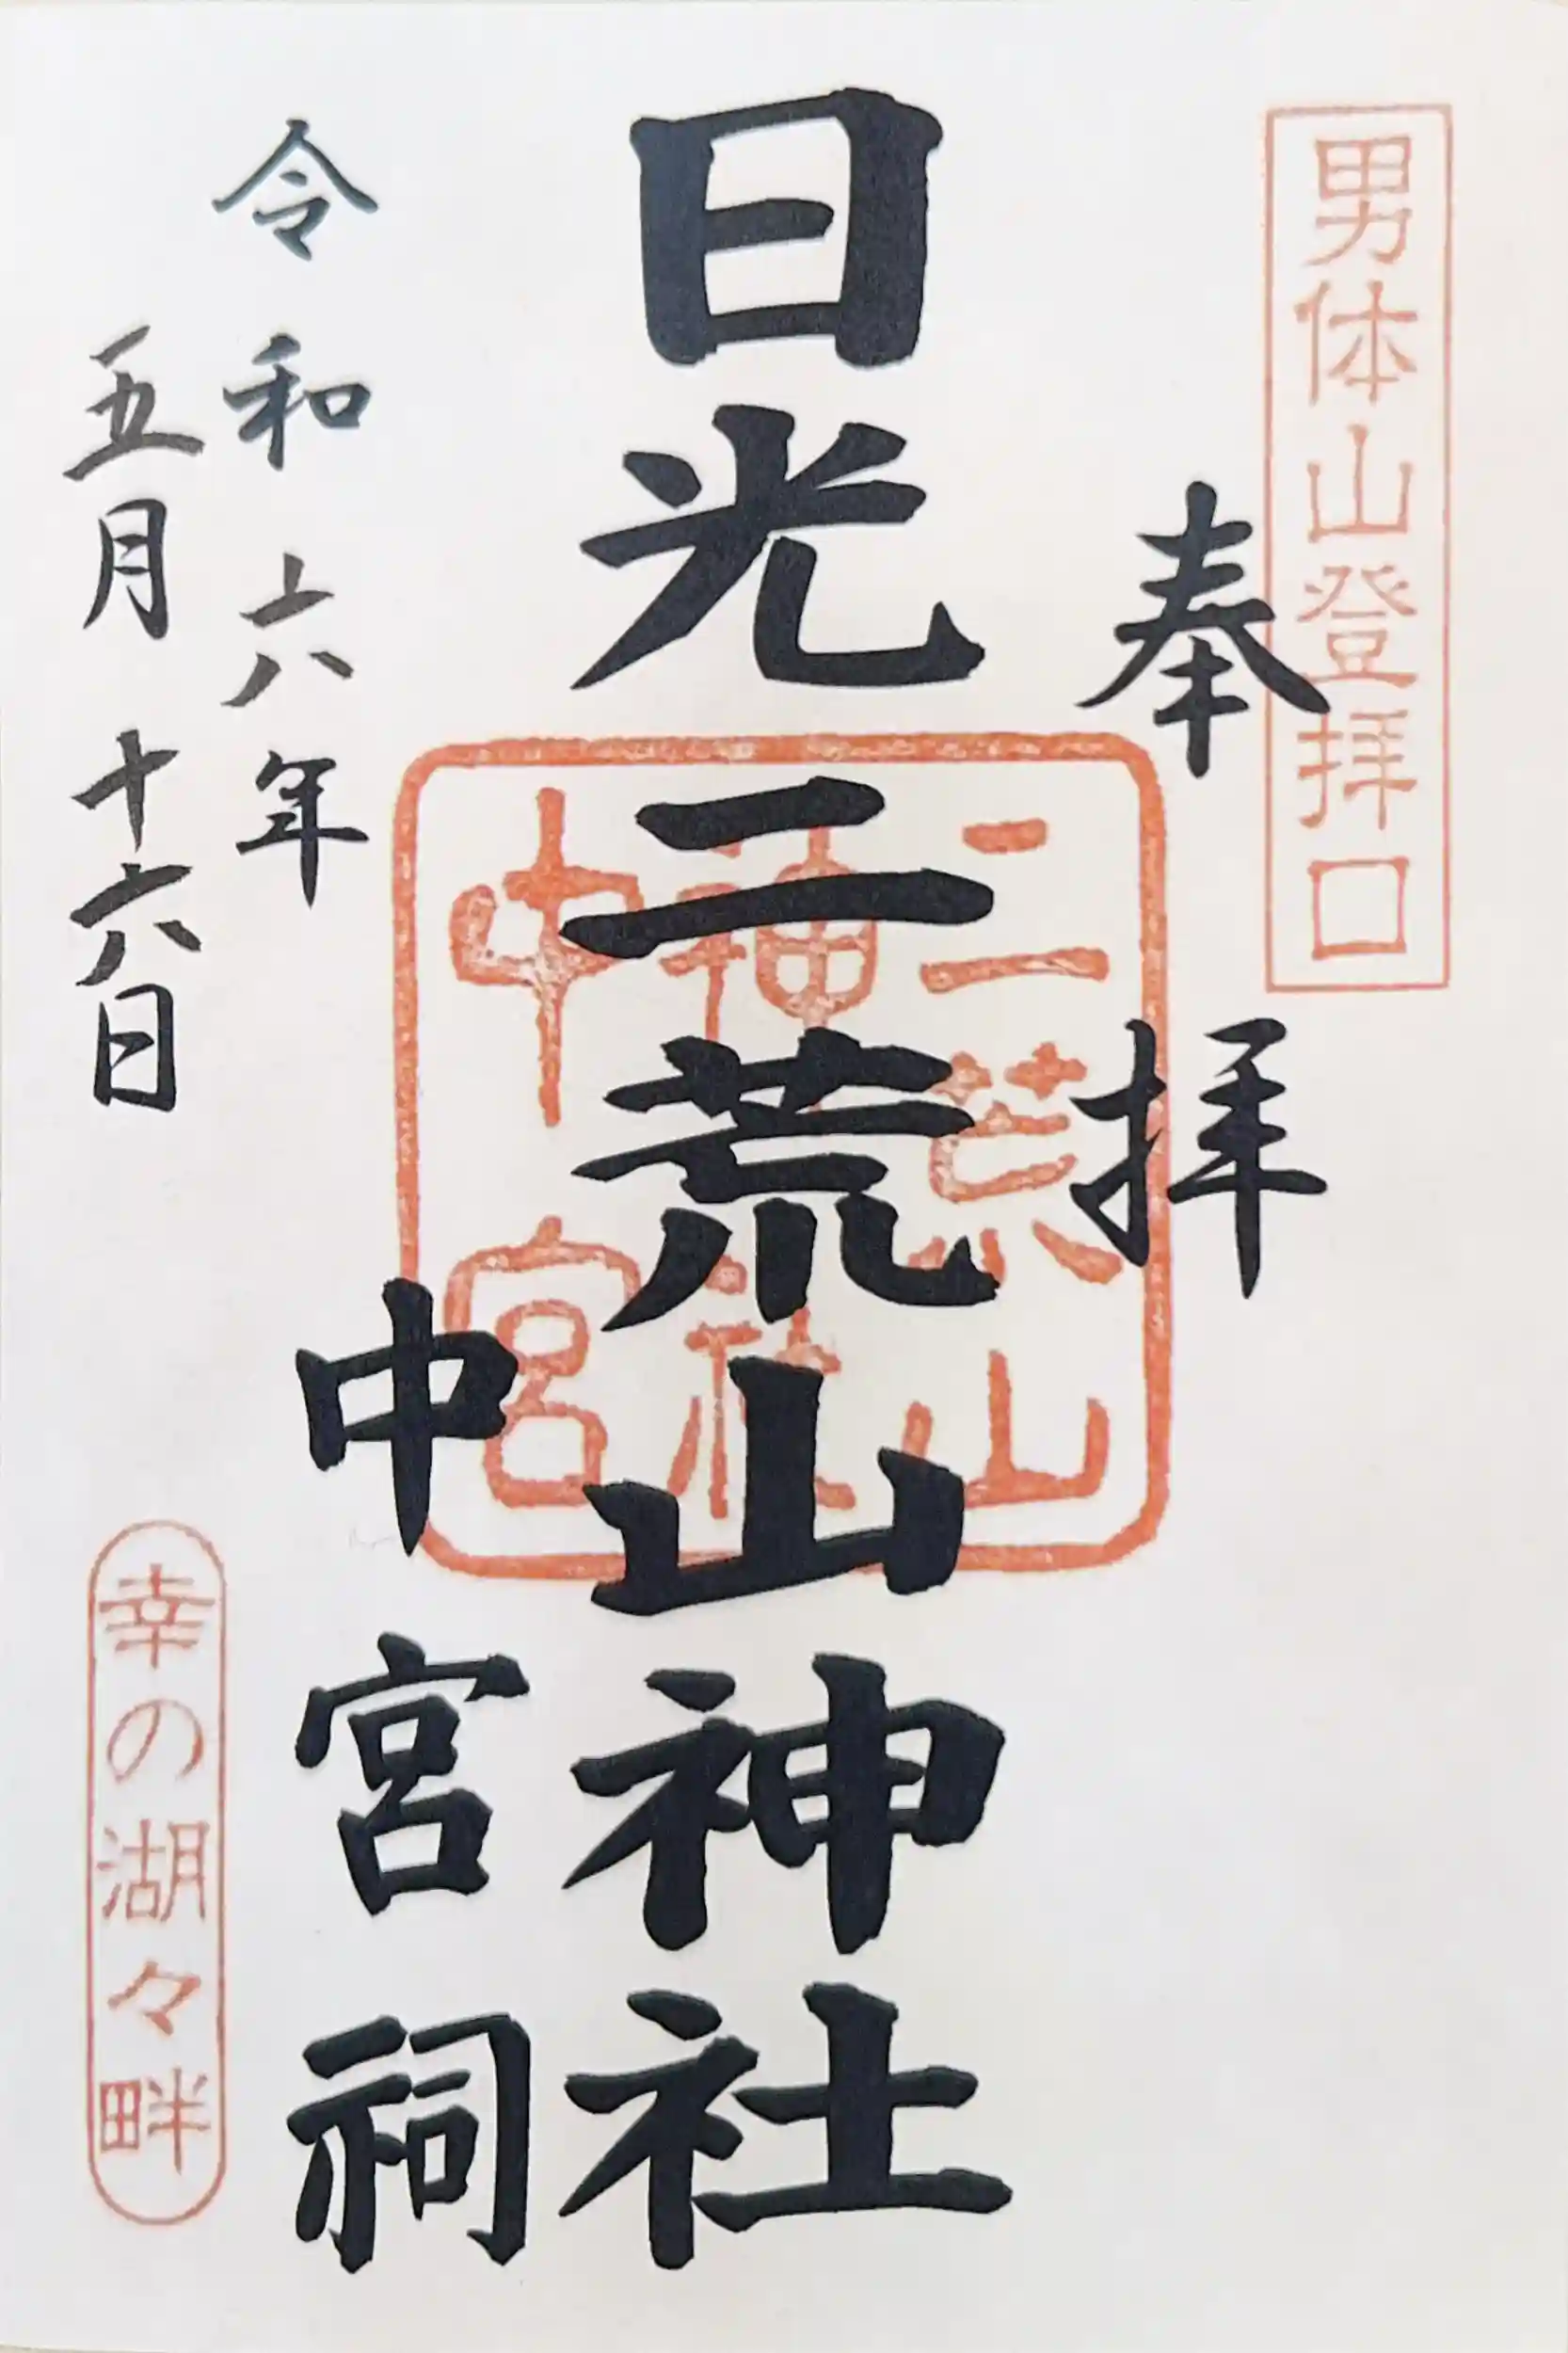 男体山登拝口
奉拝
日光二荒山神社
二荒山
神社
中宮
中宮祠
令和六年
五月十六日
幸の湖々畔